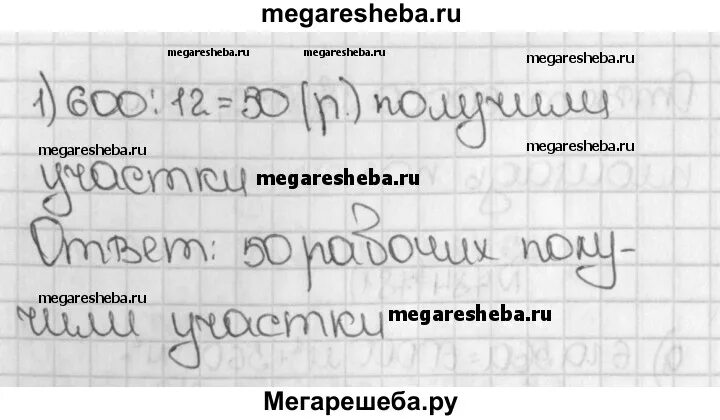 megaresheba.ru
megaresheba.ru megaresheba.ru megaresheba.ru
1) 600:12=50 (р.) получили
megaresheba.ru megaresheba.ru
участки megaresheba.ru
Ответ: 50 рабочих полу-
megaresheba.ru megaresheba.ru
чили участки
Мегарешеба.ру